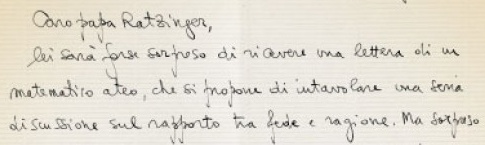 Caro papa Ratzinger,
lei sarà forse sorpreso di ricevere una lettera di un
matematico ateo, che si propone di intavolare una seria
discussione sul rapporto tra fede e ragione. Ma sorpreso